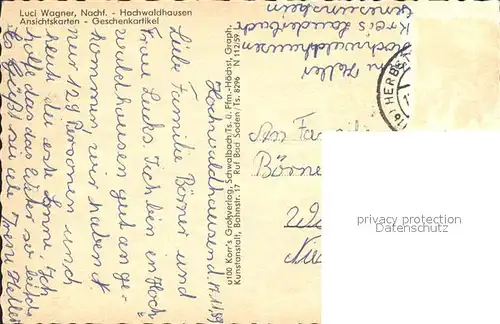 Luci Wagner, Nachf. - Hochwaldhausen
Ansichtskarten - Geschenkartikel
Hochwaldhausen d. 17.1.59
Liebe Familie Börner und
Frau Lucks. Ich bin in Hoch=
waldhausen gut ange-
kommen, wir haben
nur 129 Personen und
heute die erste Sonne. Ich
hoffe das das Wetter so bleibt
Es grüßt sie Irene Heller
u100 Korr's Großverlag, Schwalbach/Ts. ü. Ffm.-Höchst, Graph.
Kunstanstalt, Bahnstr. 17 Ruf Bad Soden Ts. 8296 N 112/59
Heller
Hochwaldhausen
Kreis Lauterbach
HERBS
An Fami
Börne
privacy protection
Datenschutz